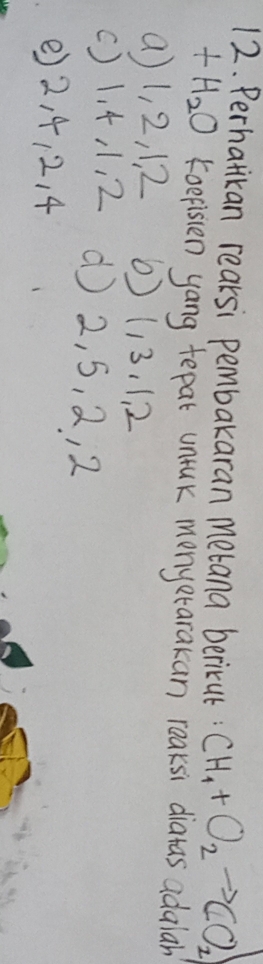 12. Perhatikan reaksi pembakaran metana berikut : CH4 + O2 → CO2
+ H2O Koefisien yang tepat untuk menyetarakan reaksi diatas adalah
a) 1, 2, 1, 2 b) 1, 3, 1, 2
c) 1, 4, 1, 2 d) 2, 5, 2, 2
e) 2, 4, 2, 4